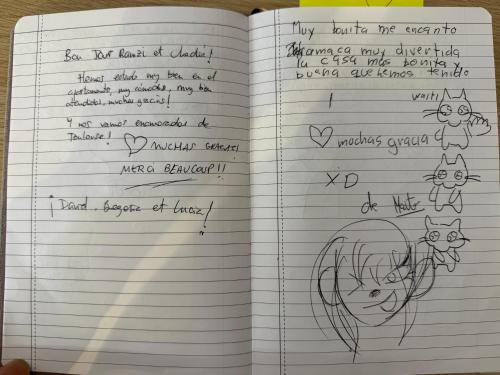 Bon Jour Ramzi et
Hemos estado muy bien en el
apartamento, muy cómodos, muy bien
atendidos, muchas gracias!
Y nos vamos enamorados de
Toulouse!
MUCHAS GRACIAS!
MERCI BEAUCOUP!!
¡David, Begoña et Lucía!
Muy bonita me encanto
amaca muy divertida
la casa mas bonita y
buena que hemos tenido
I
wait!
muchas gracia
XD
de